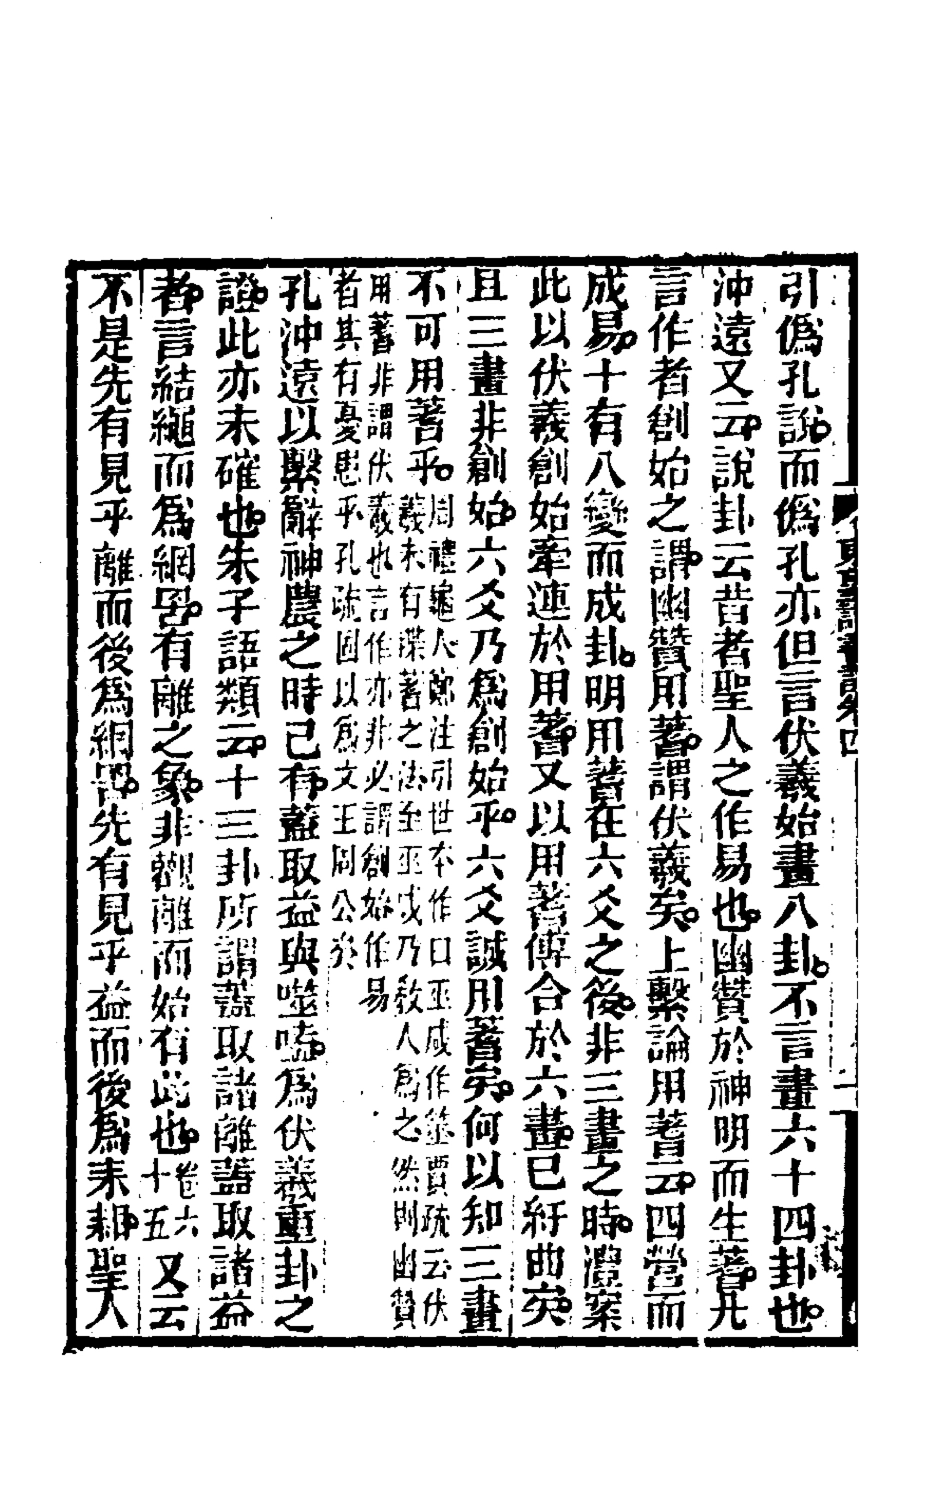 引僞孔說而僞孔亦但言伏羲始畫八卦不言畫六十四卦也
沖遠又云說卦云昔者聖人之作易也幽贊於神明而生蓍凡
言作者創始之謂幽贊用蓍謂伏羲矣上繫論用蓍云四營而
成易十有八變而成卦明用蓍在六爻之後非三畫之時澧案
此以伏羲創始牽連於用蓍又以用蓍傅合於六畫已紆曲矣
且三畫非創始六爻乃爲創始乎六爻誠用蓍矣何以知三畫
不可用蓍乎周禮龜人鄭注引世本作曰巫咸作筮賈疏云伏
羲未有揲蓍之法至巫咸乃敎人爲之然則幽贊
用蓍非謂伏羲也言作亦非必謂創始作易
者其有憂患乎孔疏固以爲文王周公矣
孔沖遠以繫辭神農之時已有蓋取益與噬嗑爲伏羲重卦之
證此亦未確也朱子語類云十三卦所謂蓋取諸離蓋取諸益
者言結繩而爲網罟有離之象非觀離而始有此也卷六
十五又云
不是先有見乎離而後爲網罟先有見乎益而後爲耒耜聖人
東塾讀書記卷四